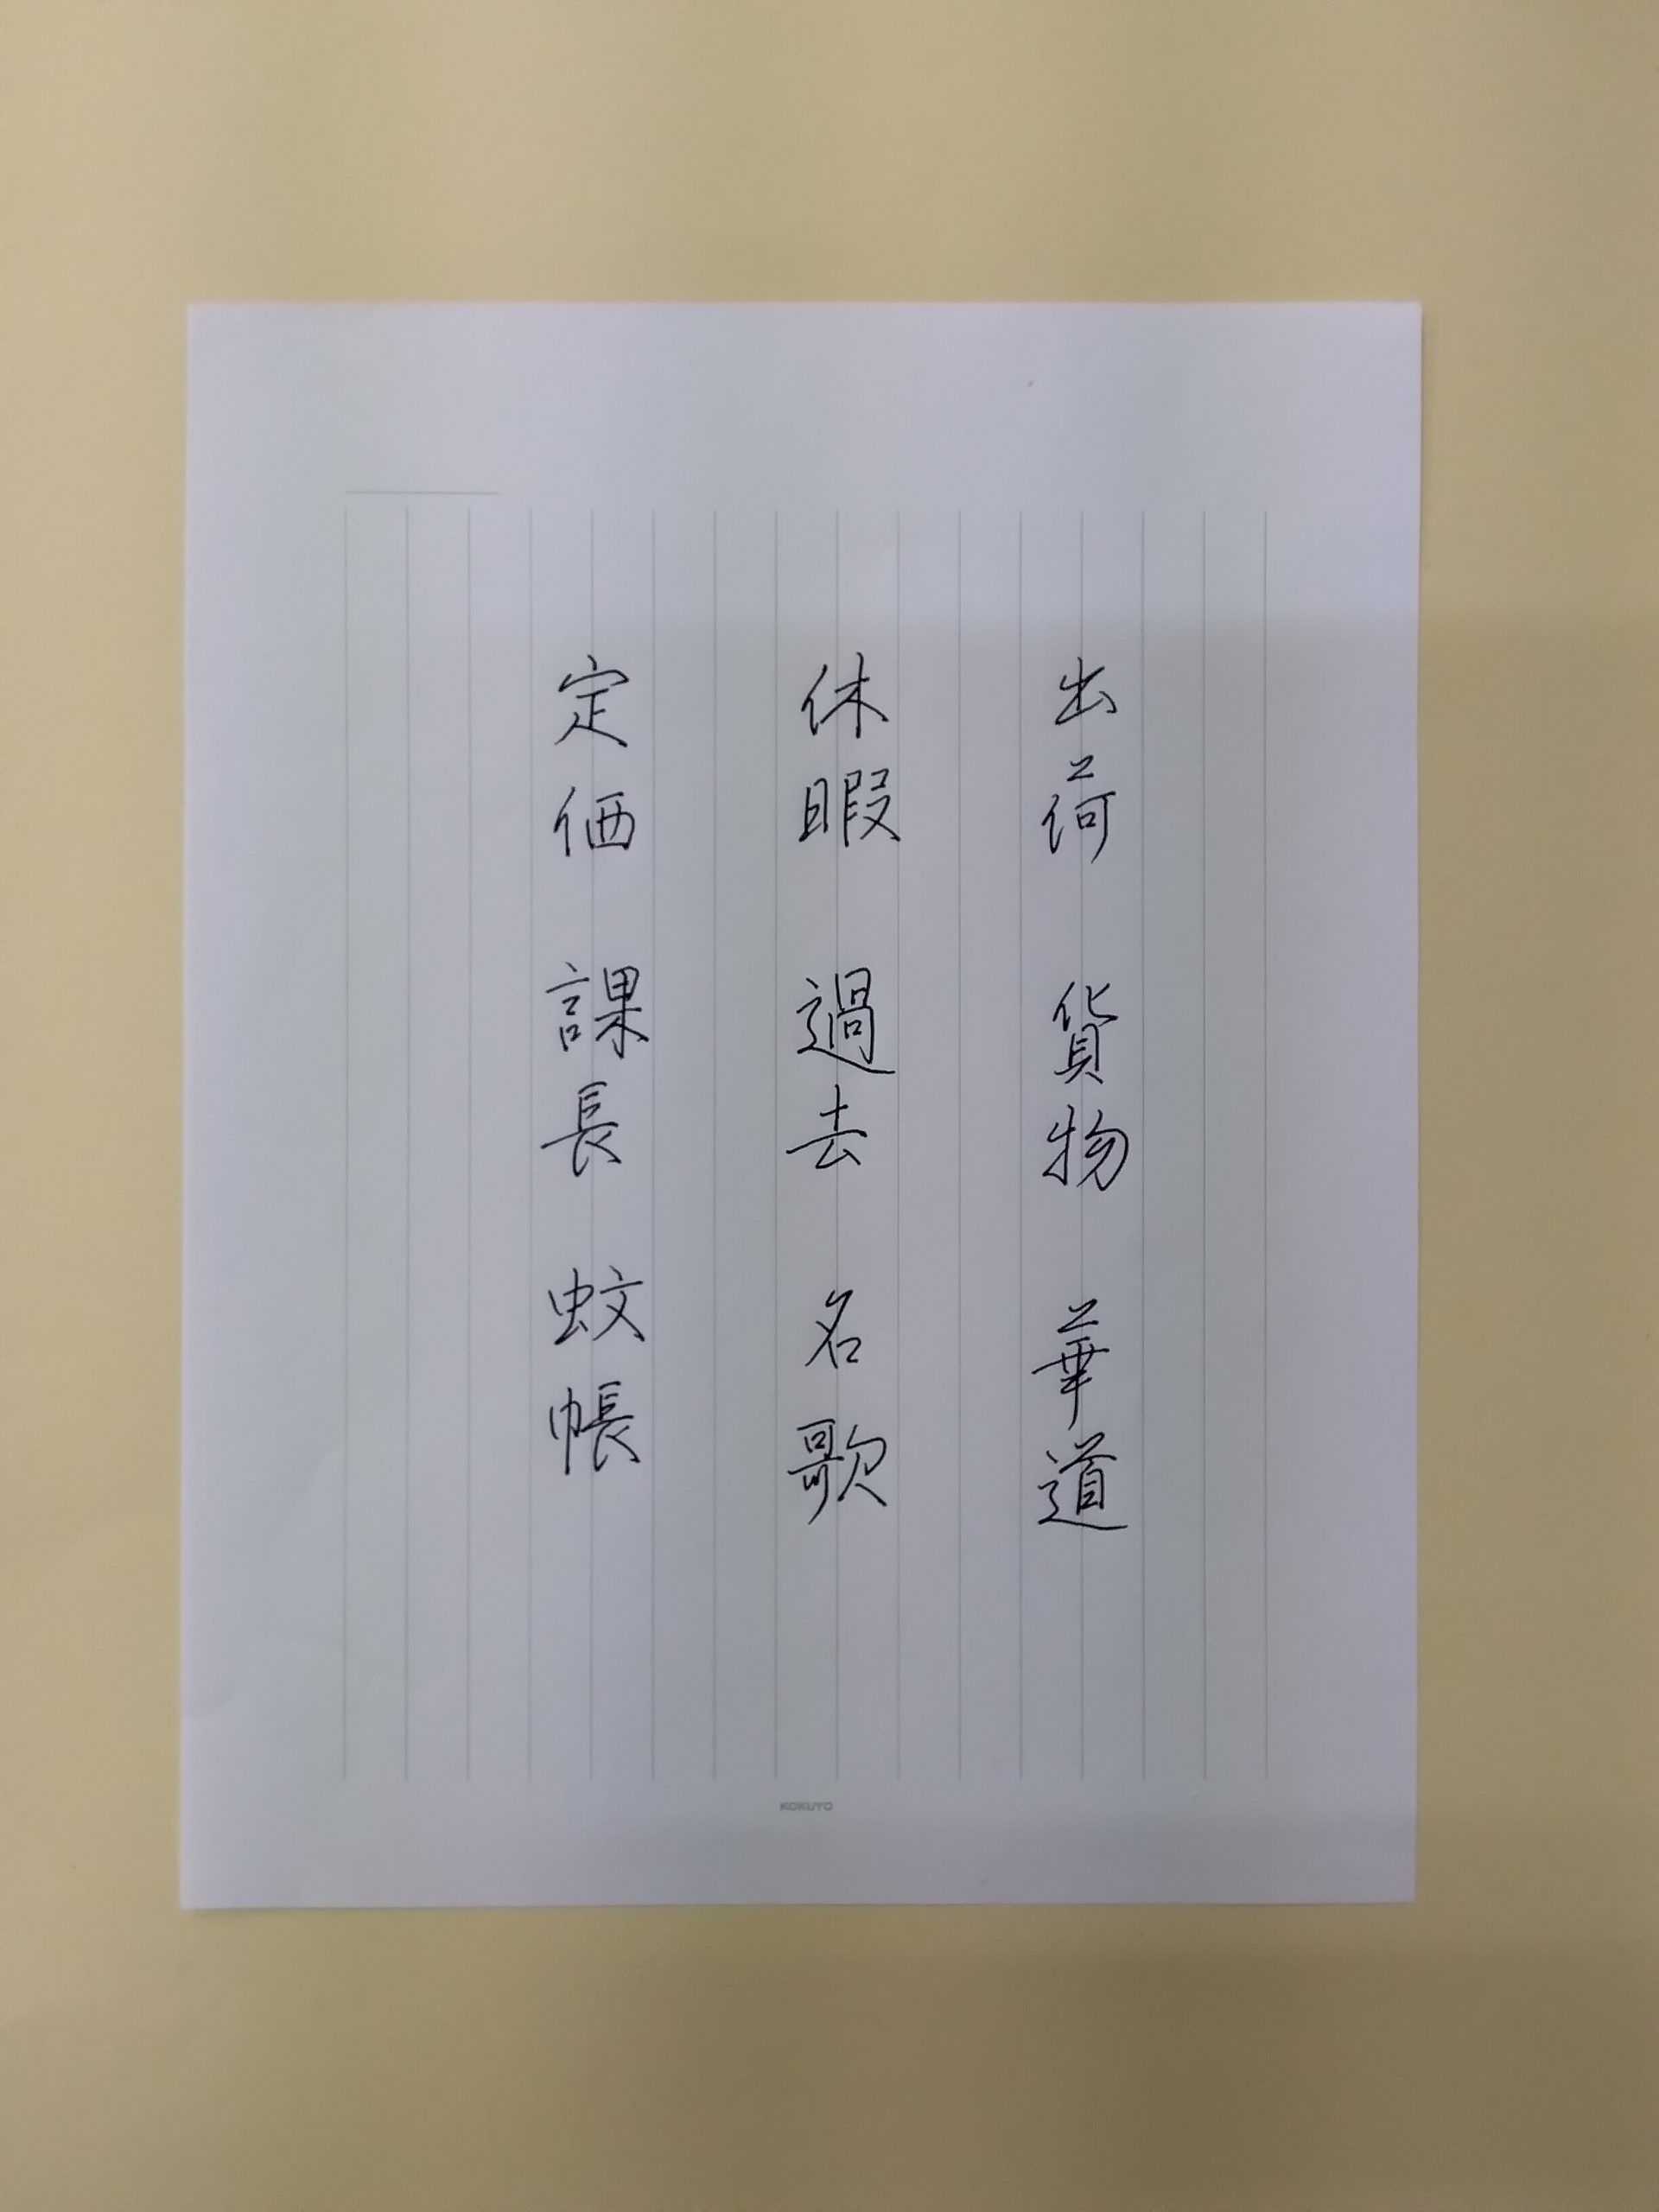 出荷 貨物 華道
休暇 過去 名歌
定価 課長 蚊帳
KOKUYO